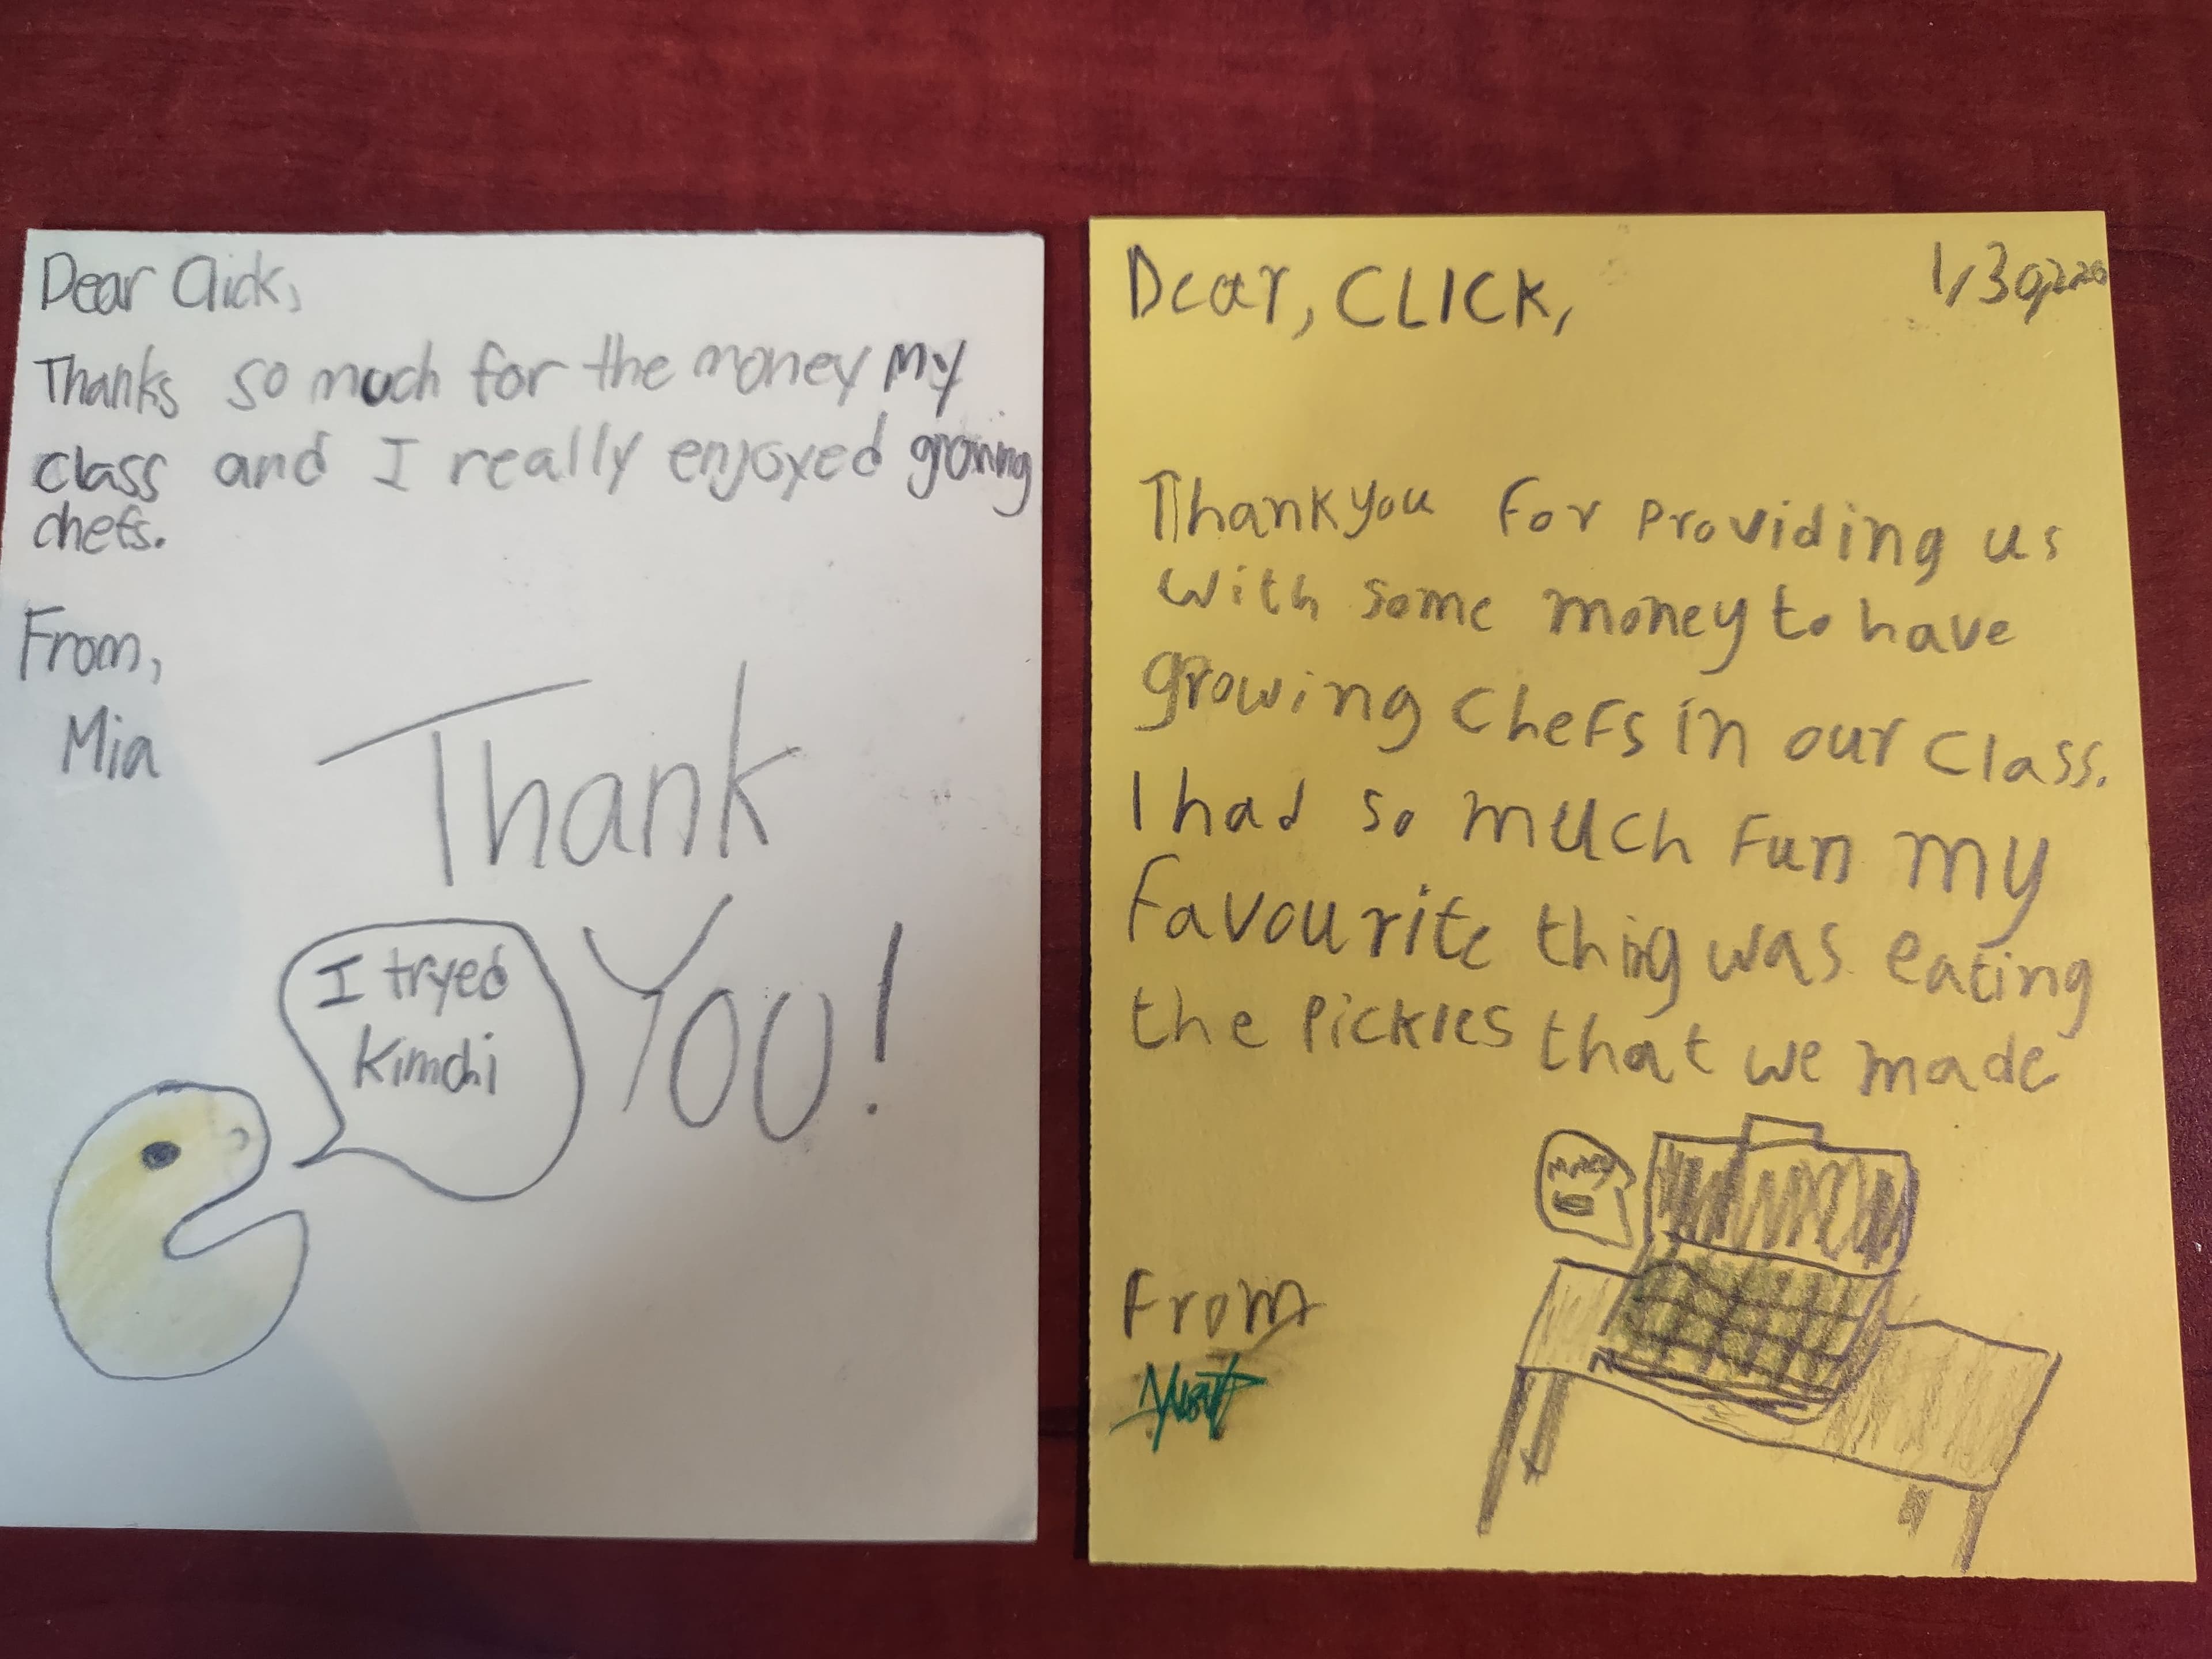 Dear Click,
Thanks so much for the money my
class and I really enjoyed growing
chefs.
From,
Mia
Thank
You!
I tryed
kimchi
Dear, CLICK,
Thankyou for providing us
with some money to have
growing chefs in our class.
I had so much fun my
favourite thing was eating
the pickles that we made
money
From